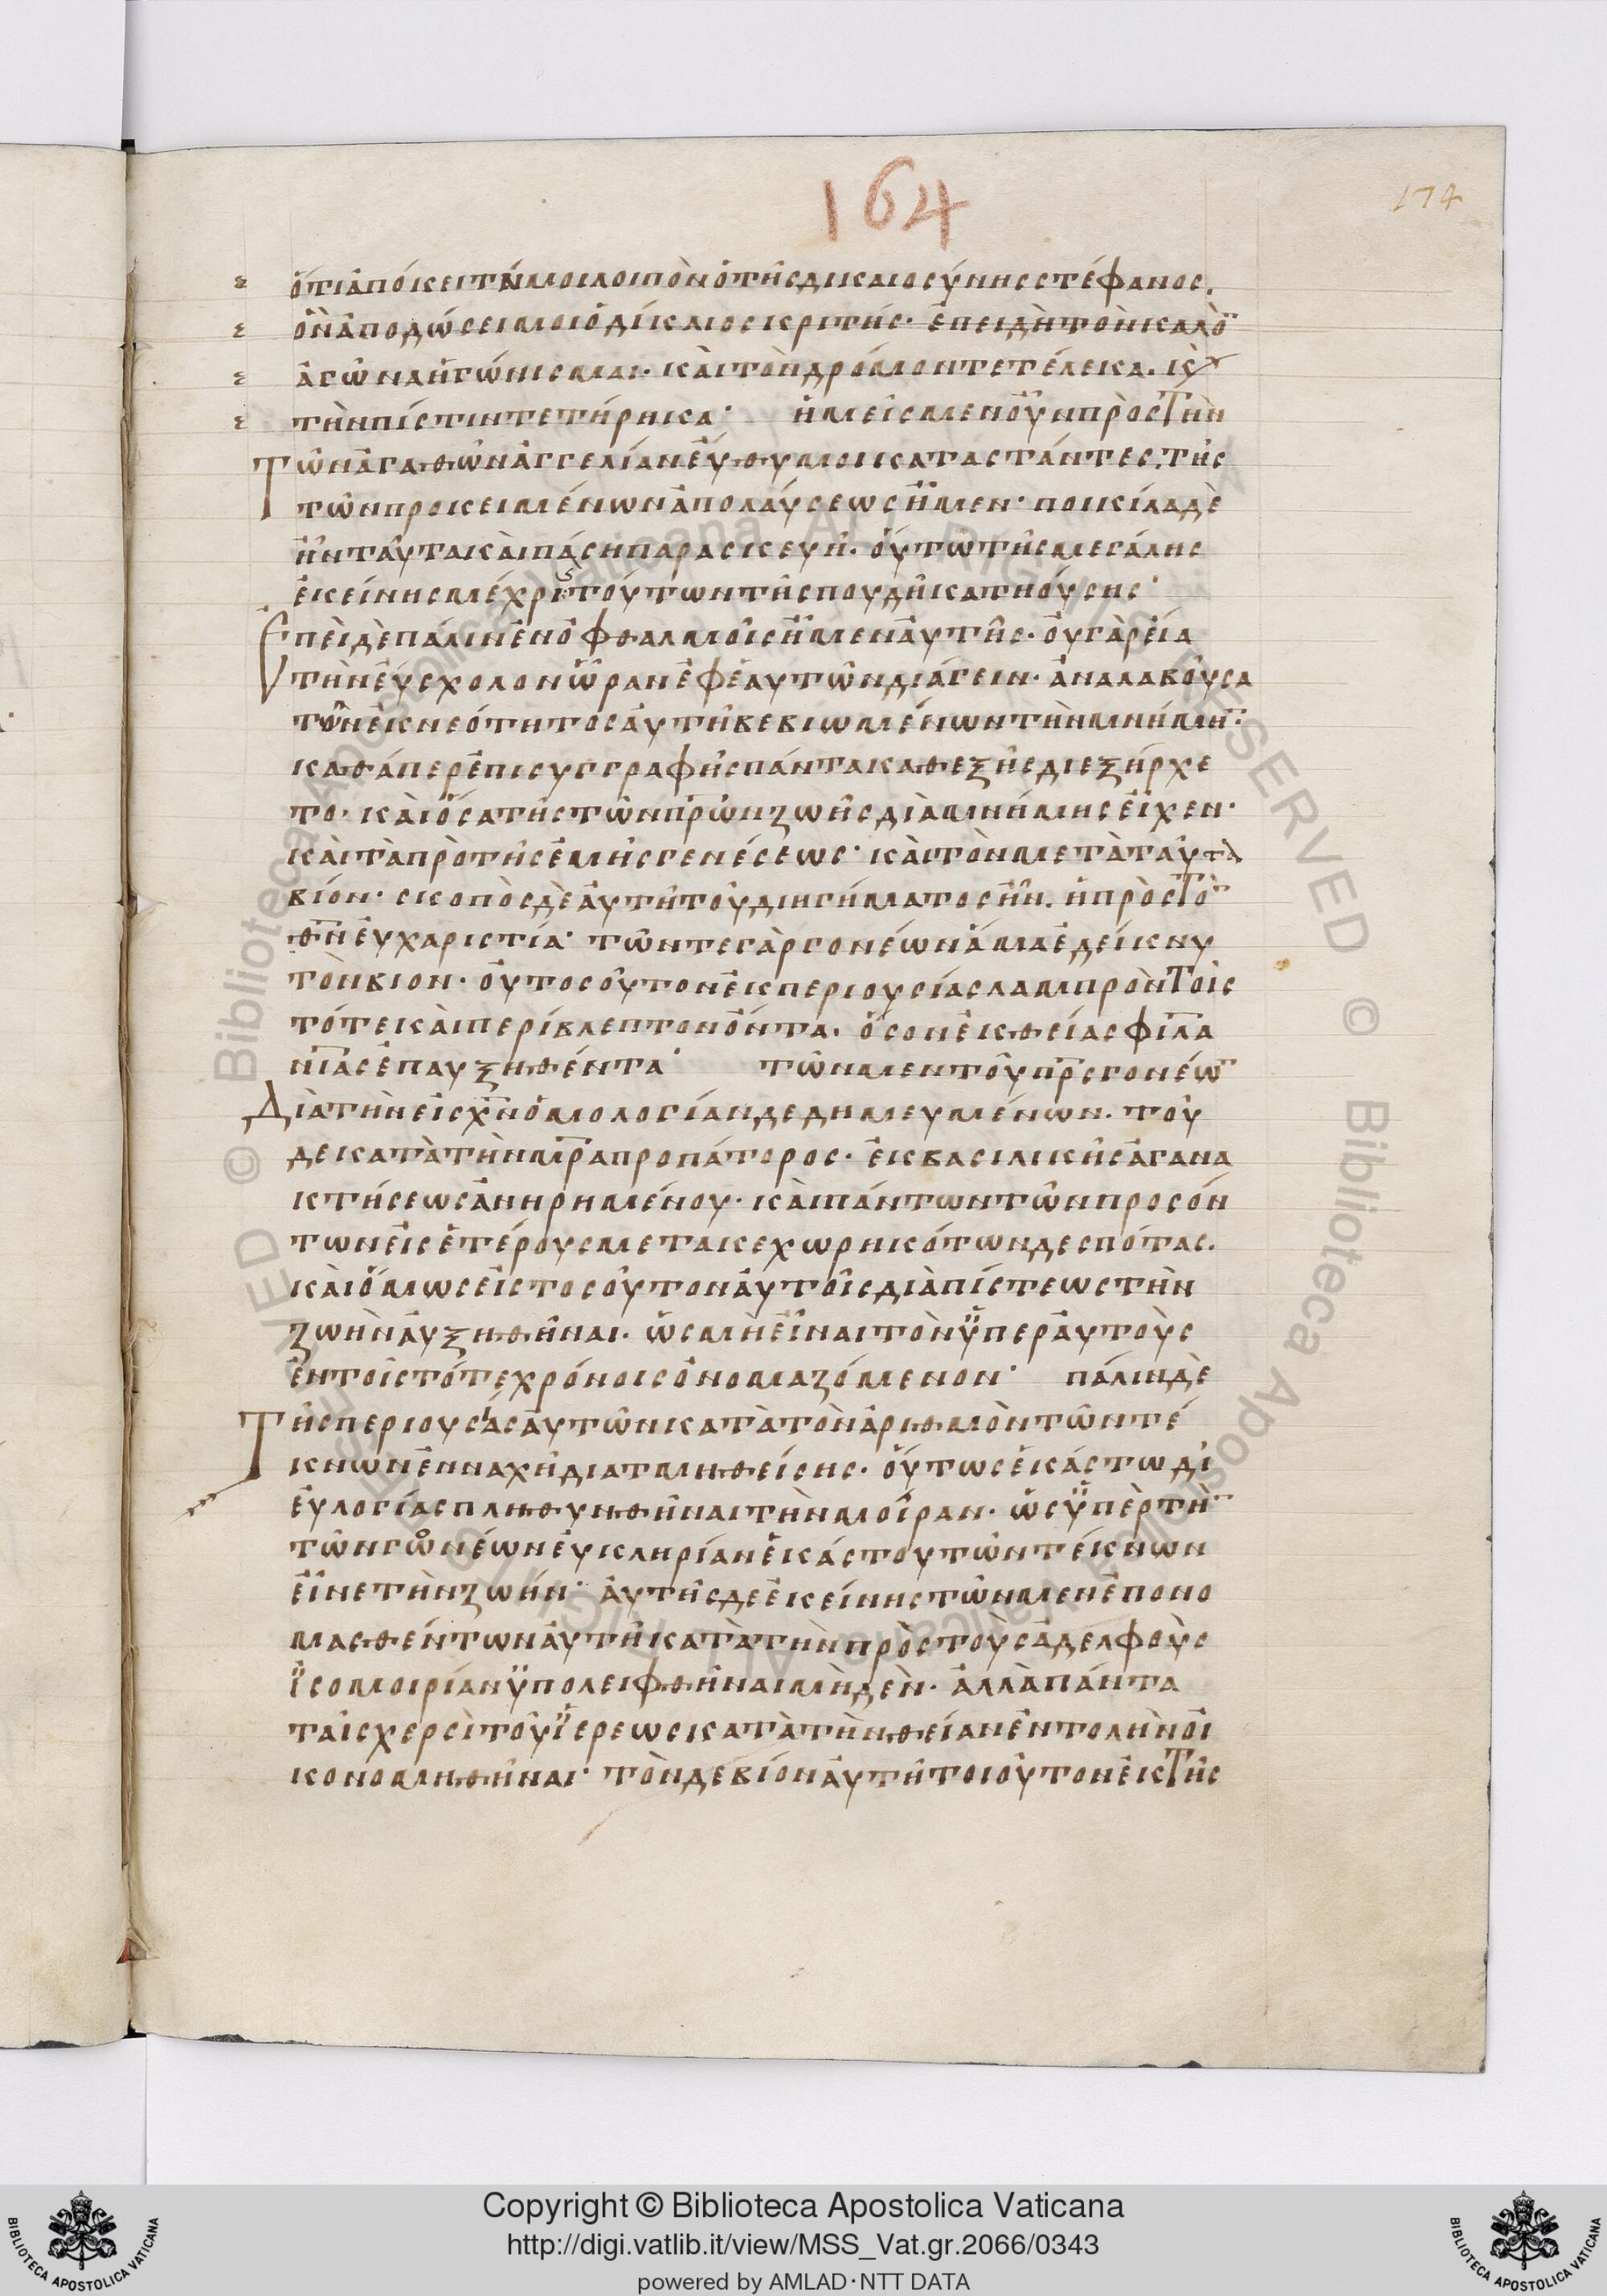 164
174
ὅτι ἀπόκειταί μοι λοιπὸν ὁ τῆς δικαιοσύνης στέφανος.
ὃν ἀποδώσει μοι ὁ δίκαιος κριτής· ἐπειδὴ τὸν καλὸ̅
ἀγῶνα ἠγώνισμαι· καὶ τὸν δρόμον τετέλεκα. κ(αὶ)
τὴν πίστιν τετήρηκα· ἡμεῖς μὲν οὖν πρὸς τὴν
Τῶν ἀγαθῶν ἀγγελίαν εὔθυμοι καταστάντες. τῆς
τῶν προκειμένων ἀπολαύσεως ἦμεν· ποικίλα δὲ
ἦν ταῦτα καὶ πᾶση παρασκευὴ. οὕτω τῆς μεγάλης
ἐκείνης μέχρι τούτων τῇ σπουδῇ κατιούσης·
Ἐπεὶ δὲ πάλιν ἐν ὀφθαλμοῖς ἦμεν αὐτῆς· οὐ γὰρ εἴα
τὴν εὔσχολον ὥραν ἐφ' ἑαυτῶν διάγειν· ἀναλαβοῦσα
τῶν ἐκ νεότητος αὐτῇ βεβιωμένων τὴν μνήμη̅·
καθάπερ ἐπὶ συγγραφῆς πάντα καθεξῆς διεξήρχε
το· καὶ ὅσα τῆς τῶν π̅ρ̅ων ζωῆς διὰ μνήμης εἶχεν·
καὶ τὰ πρὸ τῆς ἐμῆς γενέσεως· καὶ τὸν μετὰ ταῦτα
βίον· σκοπὸς δὲ αὐτῇ τοῦ διηγήματος ἦν. ἡ πρὸς τὸ̅
θ̅ν̅ εὐχαριστία· τῶν τε γὰρ γονέων ἅμα ἐδείκνυ
τὸν βίον· οὕτος οὗτον ἐκ περιουσίας λαμπρὸν τοῖς
τότε καὶ περίβλεπτον ὄντα. ὅσον ἐκ θείας φιλα
ν̅ι̅ας ἐπαυξηθέντα· τῶν μὲν τοῦ π̅ρ̅ς γονέω̅
Διὰ τὴν εἰς χ̅ν̅ ὁμολογίαν δεδημευμένων. τοῦ
δὲ κατὰ τὴν μ̅ρ̅α προπάτορος· ἐκ βασιλικῆς ἀγανα
κτήσεως ἀνηρημένου· καὶ πάντων τῶν προσόν
των εἰς ἑτέρους μετακεχωρηκότων δεσπότας.
καὶ ὅμως εἰς τοσοῦτον αὐτοῖς διὰ πίστεως τὴν
ζωὴν αὐξηθῆναι. ὡς μὴ εἶναι τὸν ὑπὲρ αὐτοὺς
ἐν τοῖς τότε χρόνοις ὀνομαζόμενον· πάλιν δὲ
Τῆς περιουσίας αὐτῶν κατὰ τὸν ἀριθμὸν τῶν τέ
κνων ἐνναχῆ διατμηθείσης. οὕτως ἑκάστω δι
εὐλογίας πληθυνθῆναι τὴν μοῖραν. ὡς ὑπὲρ τὴ̅
τῶν γονέων εὐκληρίαν ἑκάστου τῶν τέκνων
εἶνε τὴν ζωήν· αὐτῆς δὲ ἐκείνης τῶν μὲν ἐπονο
μασθέντων αὐτῇ κατὰ τὴν πρὸς τοὺς ἀδελφοὺς
ἰσομοιρίαν ὑπολειφθῆναι μηδὲν· ἀλλὰ πάντα
ταῖς χερσὶ τοῦ ἱερέως κατὰ τὴν θείαν ἐντολὴν οἰ
κονομηθῆναι· τὸν δὲ βίον αὐτῇ τοιοῦτον ἐκ τῆς
Copyright © Biblioteca Apostolica Vaticana
http://digi.vatlib.it/view/MSS_Vat.gr.2066/0343
powered by AMLAD·NTT DATA